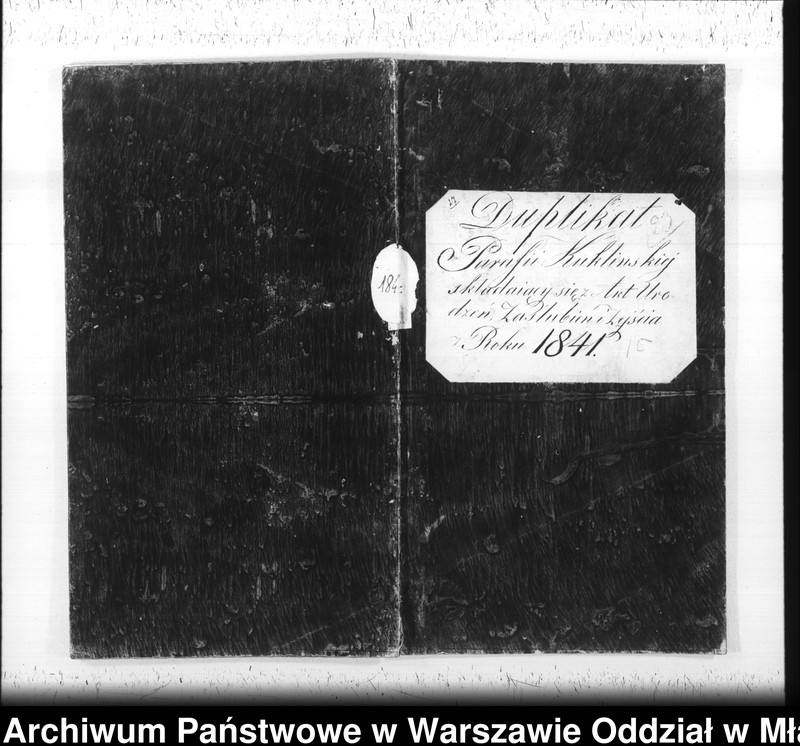 Duplikat
Parafii Kuklinskiej
składaiący się z Akt Uro-
dzeń, Zaślubień i Zyścia
z Roku 1841.
184
Archiwum Państwowe w Warszawie Oddział w Mła